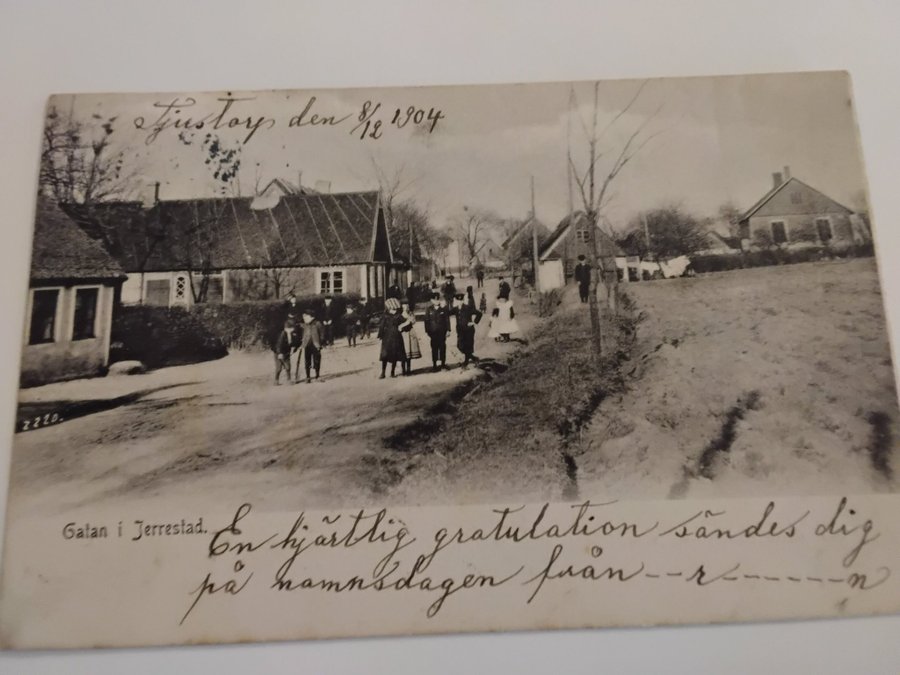 Tjustorp den 8/12 1904
2220.
Gatan i Jerrestad.
En hjärtlig gratulation sändes dig
på namnsdagen från--r------n